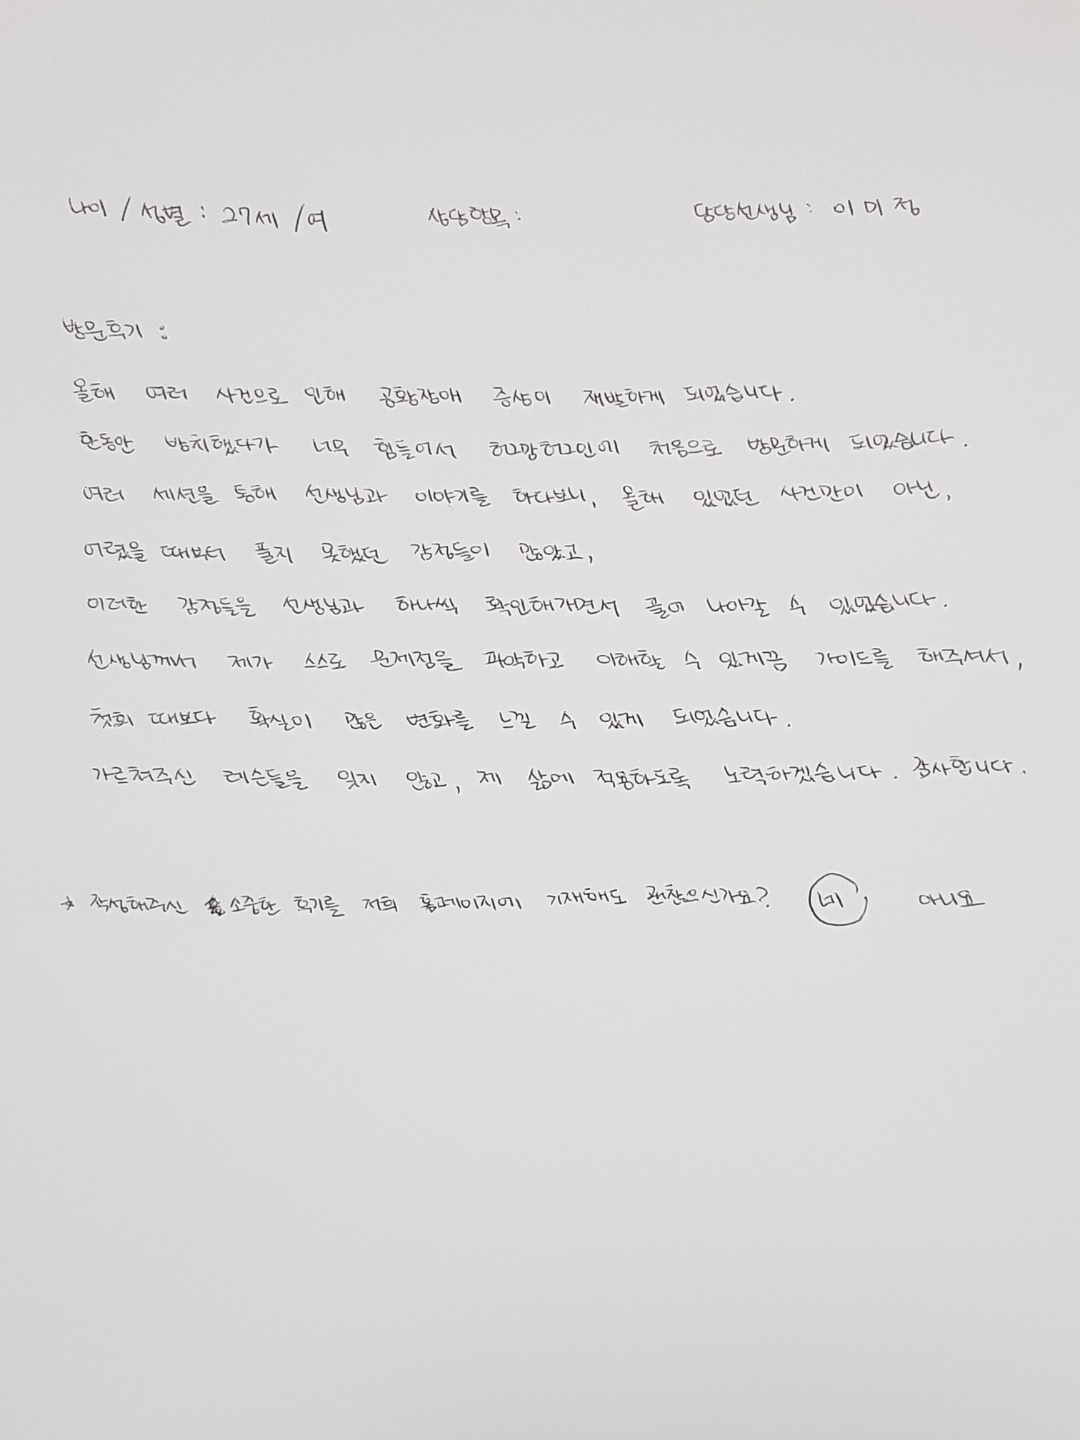 나이 / 성별 : 27세 / 여 상담항목 : 담당선생님 : 이미정
방문후기 :
올해 여러 사건으로 인해 공황장애 증상이 재발하게 되었습니다.
한동안 방치했다가 너무 힘들어서 허그맘허그인에 처음으로 방문하게 되었습니다.
여러 세션을 통해 선생님과 이야기를 하다보니, 올해 있었던 사건만이 아닌,
어렸을 때부터 풀지 못했던 감정들이 많았고,
이러한 감정들을 선생님과 하나씩 확인해가면서 풀어 나아갈 수 있었습니다.
선생님께서 제가 스스로 문제점을 파악하고 이해할 수 있게끔 가이드를 해주셔서,
첫회 때보다 확실이 많은 변화를 느낄 수 있게 되었습니다.
가르쳐주신 레슨들을 잊지 않고, 제 삶에 적용하도록 노력하겠습니다. 감사합니다.
* 작성해주신 소중한 후기를 저희 홈페이지에 기재해도 괜찮으신가요? 네, 아니요